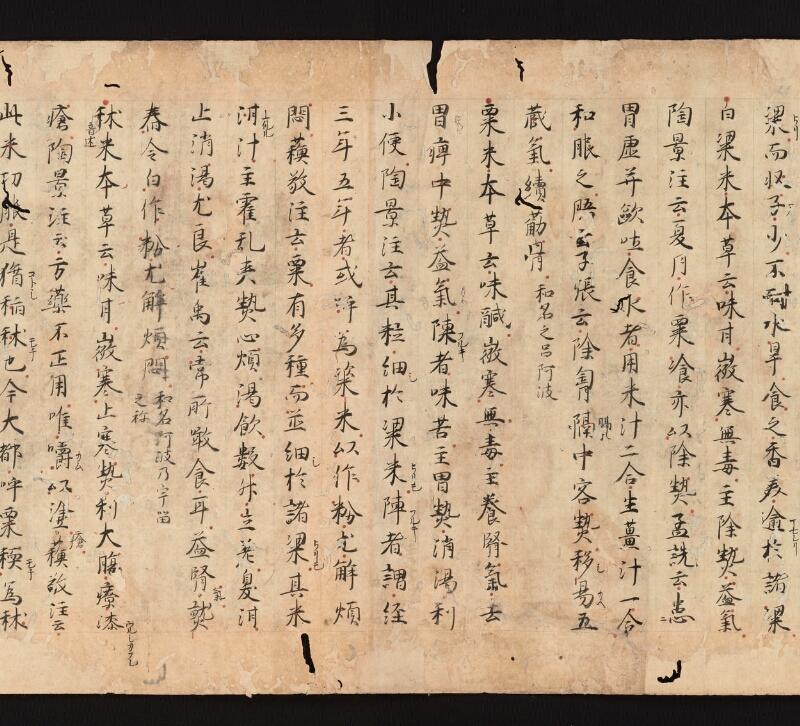 梁而收子少不耐水旱食之香美渝於諸梁
白梁米本草云味甘微寒無毒主除熱益氣
陶景注云夏月作粟飡亦以除熱孟詵云患
胃虛并歐吐食水者用米汁二合生薑汁一合
和服之膳玄子張云除胷膈中客熱移易五
蔵氣續荕骨 和名之呂阿波
粟米本草云味鹹微寒無毒主養腎氣去
胃痺中熱益氣陳者味苦主胃熱消渴利
小便陶景注云其粒細於梁米陳者謂経
三年五年者或呼為粢米以作粉尤解煩
悶蘓敬注云粟有多種而並細於諸梁其米
泔汁主霍乱夾熱心煩渴飲數升立差臭泔
止消渴尤良崔禹云常所噉食耳益腎氣
舂令白作粉尤解煩悶 和名阿波乃宇留之祢
秫米本草云味甘微寒止寒熱利大腸療漆
瘡陶景注云方藥不正用唯嚼以塗蘓敬注云
此米功能是猶稲秫也今大都呼粟穤為秫